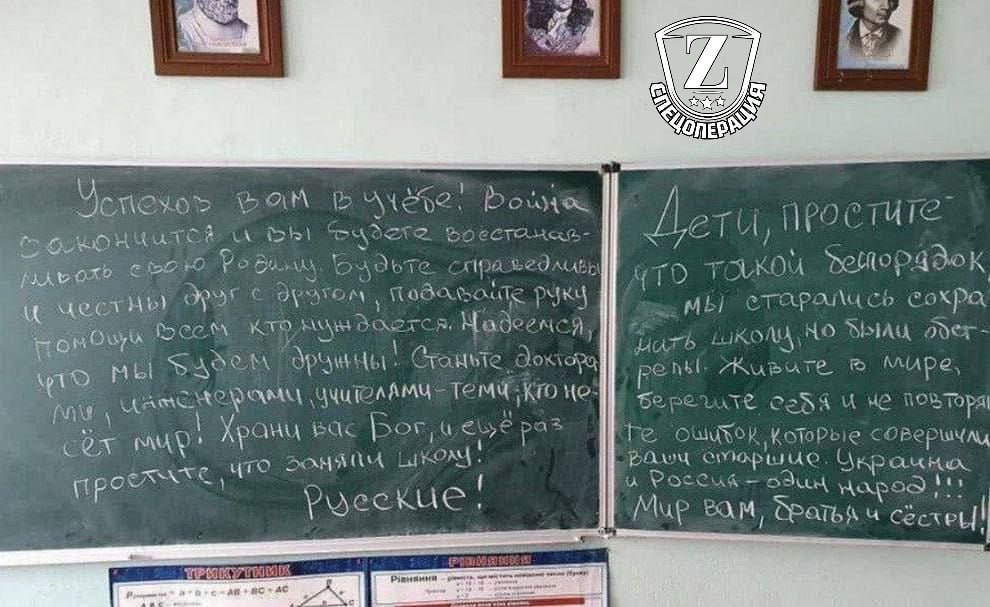 Z
СПЕЦОПЕРАЦИЯ
Успехов вам в учёбе! Война
закончится и вы будете восстанав-
ливать свою Родину. Будьте справедливы
и честны друг с другом, подавайте руку
помощи всем кто нуждается. Надеемся,
что мы будем дружны! Станьте доктора-
ми, инженерами, учителями-теми, кто не-
сёт мир! Храни вас Бог, и ещё раз
простите, что заняли школу!
Русские!
Дети, простите
что такой беспорядок,
мы старались сохра
нить школу, но были обст-
релы. Живите в мире,
берегите себя и не повторяй
те ошибок, которые совершили
ваши старшие. Украина
и Россия - один народ!!!
Мир вам, братья и сёстры!
ТРИКУТНИК
= a + b + c = AB + BC + AC
РІВНЯННЯ
Рівняння – рівність, що містить невідоме число (букву)